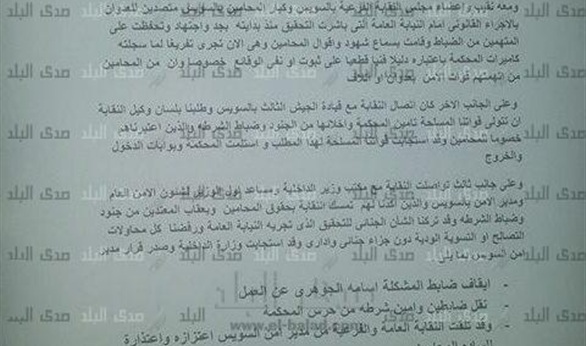 ومعه نقيب واعضاء مجلس النقابة الفرعية بالسويس وكبار المحامين بالسويس متصدين للعدوان
بالاجراء القانونى امام النيابة العامة التى باشرت التحقيق منذ بدايته بجد واجتهاد وتحفظت على
المتهمين من الضباط وقامت بسماع شهود واقوال المحامين وهى الان تجرى تفريغا لما سجلته
كاميرات المحكمة باعتباره دليلا فنيا قطعيا على ثبوت او نفى الوقائع خصوصا وان من المحامين
من اتهمتهم قوات الامن بعدوان
وعلى الجانب الاخر كان اتصال النقابة مع قيادة الجيش الثالث بالسويس وطلبنا بلسان وكيل النقابة
ان تتولى قواتنا المسلحة تامين المحكمة واخلائها من الجنود وضباط الشرطه والذين اعتبرناهم
خصوما للمحامين وقد استجابت قواتنا المسلحة لهذا المطلب و استلمت المحكمة وبوابات الدخول
والخروج
وعلى جانب ثالث تواصلت النقابة مع مكتب وزير الداخلية ومساعد اول الوزير لشئون الامن العام
ومدير الامن بالسويس والذين اكدنا لهم تمسك النقابة بحقوق المحامين وبعقاب المعتدين من جنود
وضباط الشرطه وقد تركنا الشأن الجنائى للتحقيق الذى تجريه النيابة العامة ورفضنا كل محاولات
التصالح او التسوية الودية دون جزاء جنائى وادارى وقد استجابت وزارة الداخلية وصدر قرار مدير
امن السويس بما يلى
- ايقاف ضابط المشكلة اسامه الجوهرى عن العمل
- نقل ضابطين وامين شرطه من حرس المحكمة
- وقد تلقت النقابة العامة والفرعية من مدير امن السويس اعتزازه واعتذارة
صدى البلد
www.el-balad.com